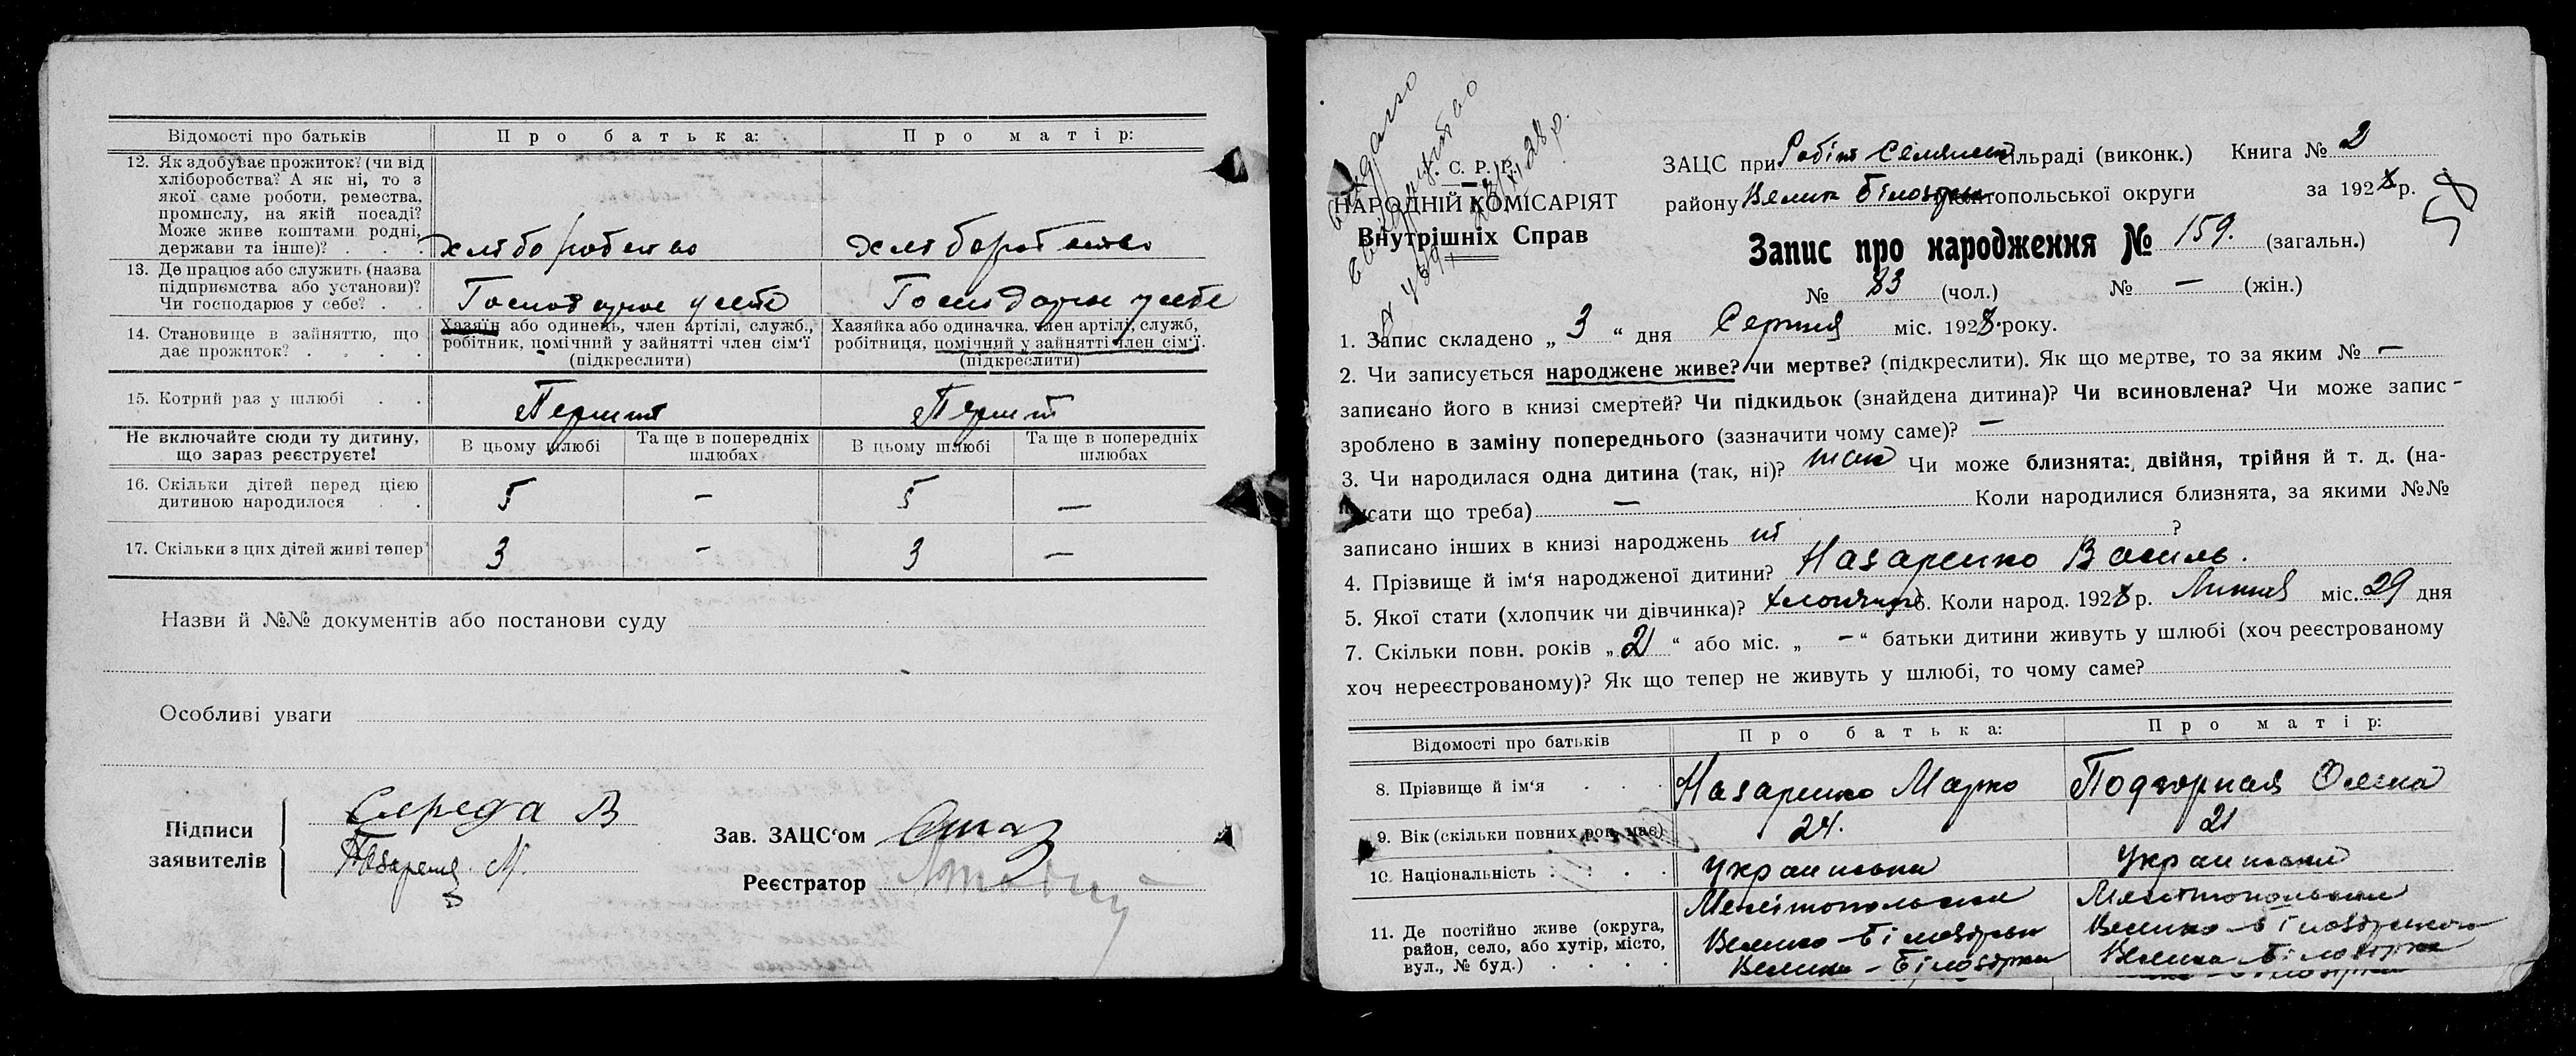 Відомості про батьків Про батька: Про матір:
12. Як здобуває прожиток? (чи від
хліборобства? А як ні, то з
якої саме роботи, ремества,
промислу, на якій посаді?
Може живе коштами родні,
держави та інше)? . . . хліборобство хліборобство
13. Де працює або служить (назва
підприємства або установи)?
Чи господарює у себе? . . Господарює у себе Господарює у себе
14. Становище в зайняттю, що
дає прожиток? . . . .
Хазяїн або одинець, член артілі, служб.,
робітник, помічний у зайнятті член сім'ї
(підкреслити)
Хазяйка або одиначка, член артілі, служб,
робітниця, помічний у зайнятті член сім'ї.
(підкреслити)
15. Котрий раз у шлюбі . .
Не включайте сюди ту дитину,
що зараз реєструєте!
В цьому шлюбі Та ще в попередніх шлюбах В цьому шлюбі Та ще в попередніх шлюбах
16. Скільки дітей перед цією
дитиною народилося . . 5 – 5 –
17. Скільки з цих дітей живі тепер 3 – 3 –
Назви й №№ документів або постанови суду
Особливі уваги
Підписи
заявителів
Середа В
М.
Зав. ЗАЦС'ом
Реєстратор
видано
28р.
С. Р. Р.
НАРОДНІЙ КОМІСАРІЯТ
Внутрішніх Справ
ЗАЦС при сільраді (виконк.) Книга № 2
району Велик Білозірськ Мелітопольської округи за 1928 р.
58
Запис про народження № 159. (загальн.)
№ 83 (чол.) № – (жін.)
1. Запис складено „ 3 “ дня Серпня міс. 1928 року.
2. Чи записується народжене живе? чи мертве? (підкреслити). Як що мертве, то за яким № –
записано його в книзі смертей? Чи підкидьок (знайдена дитина)? Чи всиновлена? Чи може запис -
зроблено в заміну попереднього (зазначити чому саме)? –
3. Чи народилася одна дитина (так, ні)? так Чи може близнята: двійня, трійня й т. д. (на-
писати що треба) – Коли народилися близнята, за якими №№
записано інших в книзі народжень ?
4. Прізвище й ім'я народженої дитини? Назаренко Василь.
5. Якої стати (хлопчик чи дівчинка)? хлопчик 6. Коли народ. 1928 р. Липня міс. 29 дня
7. Скільки повн. років „ 2 “ або міс. „ – “ батьки дитини живуть у шлюбі (хоч реєстрованому
хоч нереєстрованому)? Як що тепер не живуть у шлюбі, то чому саме?
Відомості про батьків Про батька: Про матір:
8. Прізвище й ім'я . . . Назаренко Марко Подгорная Олена
9. Вік (скільки повних рок. має) 24. 21
10. Національність : . . . Украинська Украинська
11. Де постійно живе (округа,
район, село, або хутір, місто,
вул., № буд.) . . . .
Мелітопольська Мелітопольська
Велико-Білозірськ Велико-Білозірськ
Велика-Білозірка Велика-Білозірка